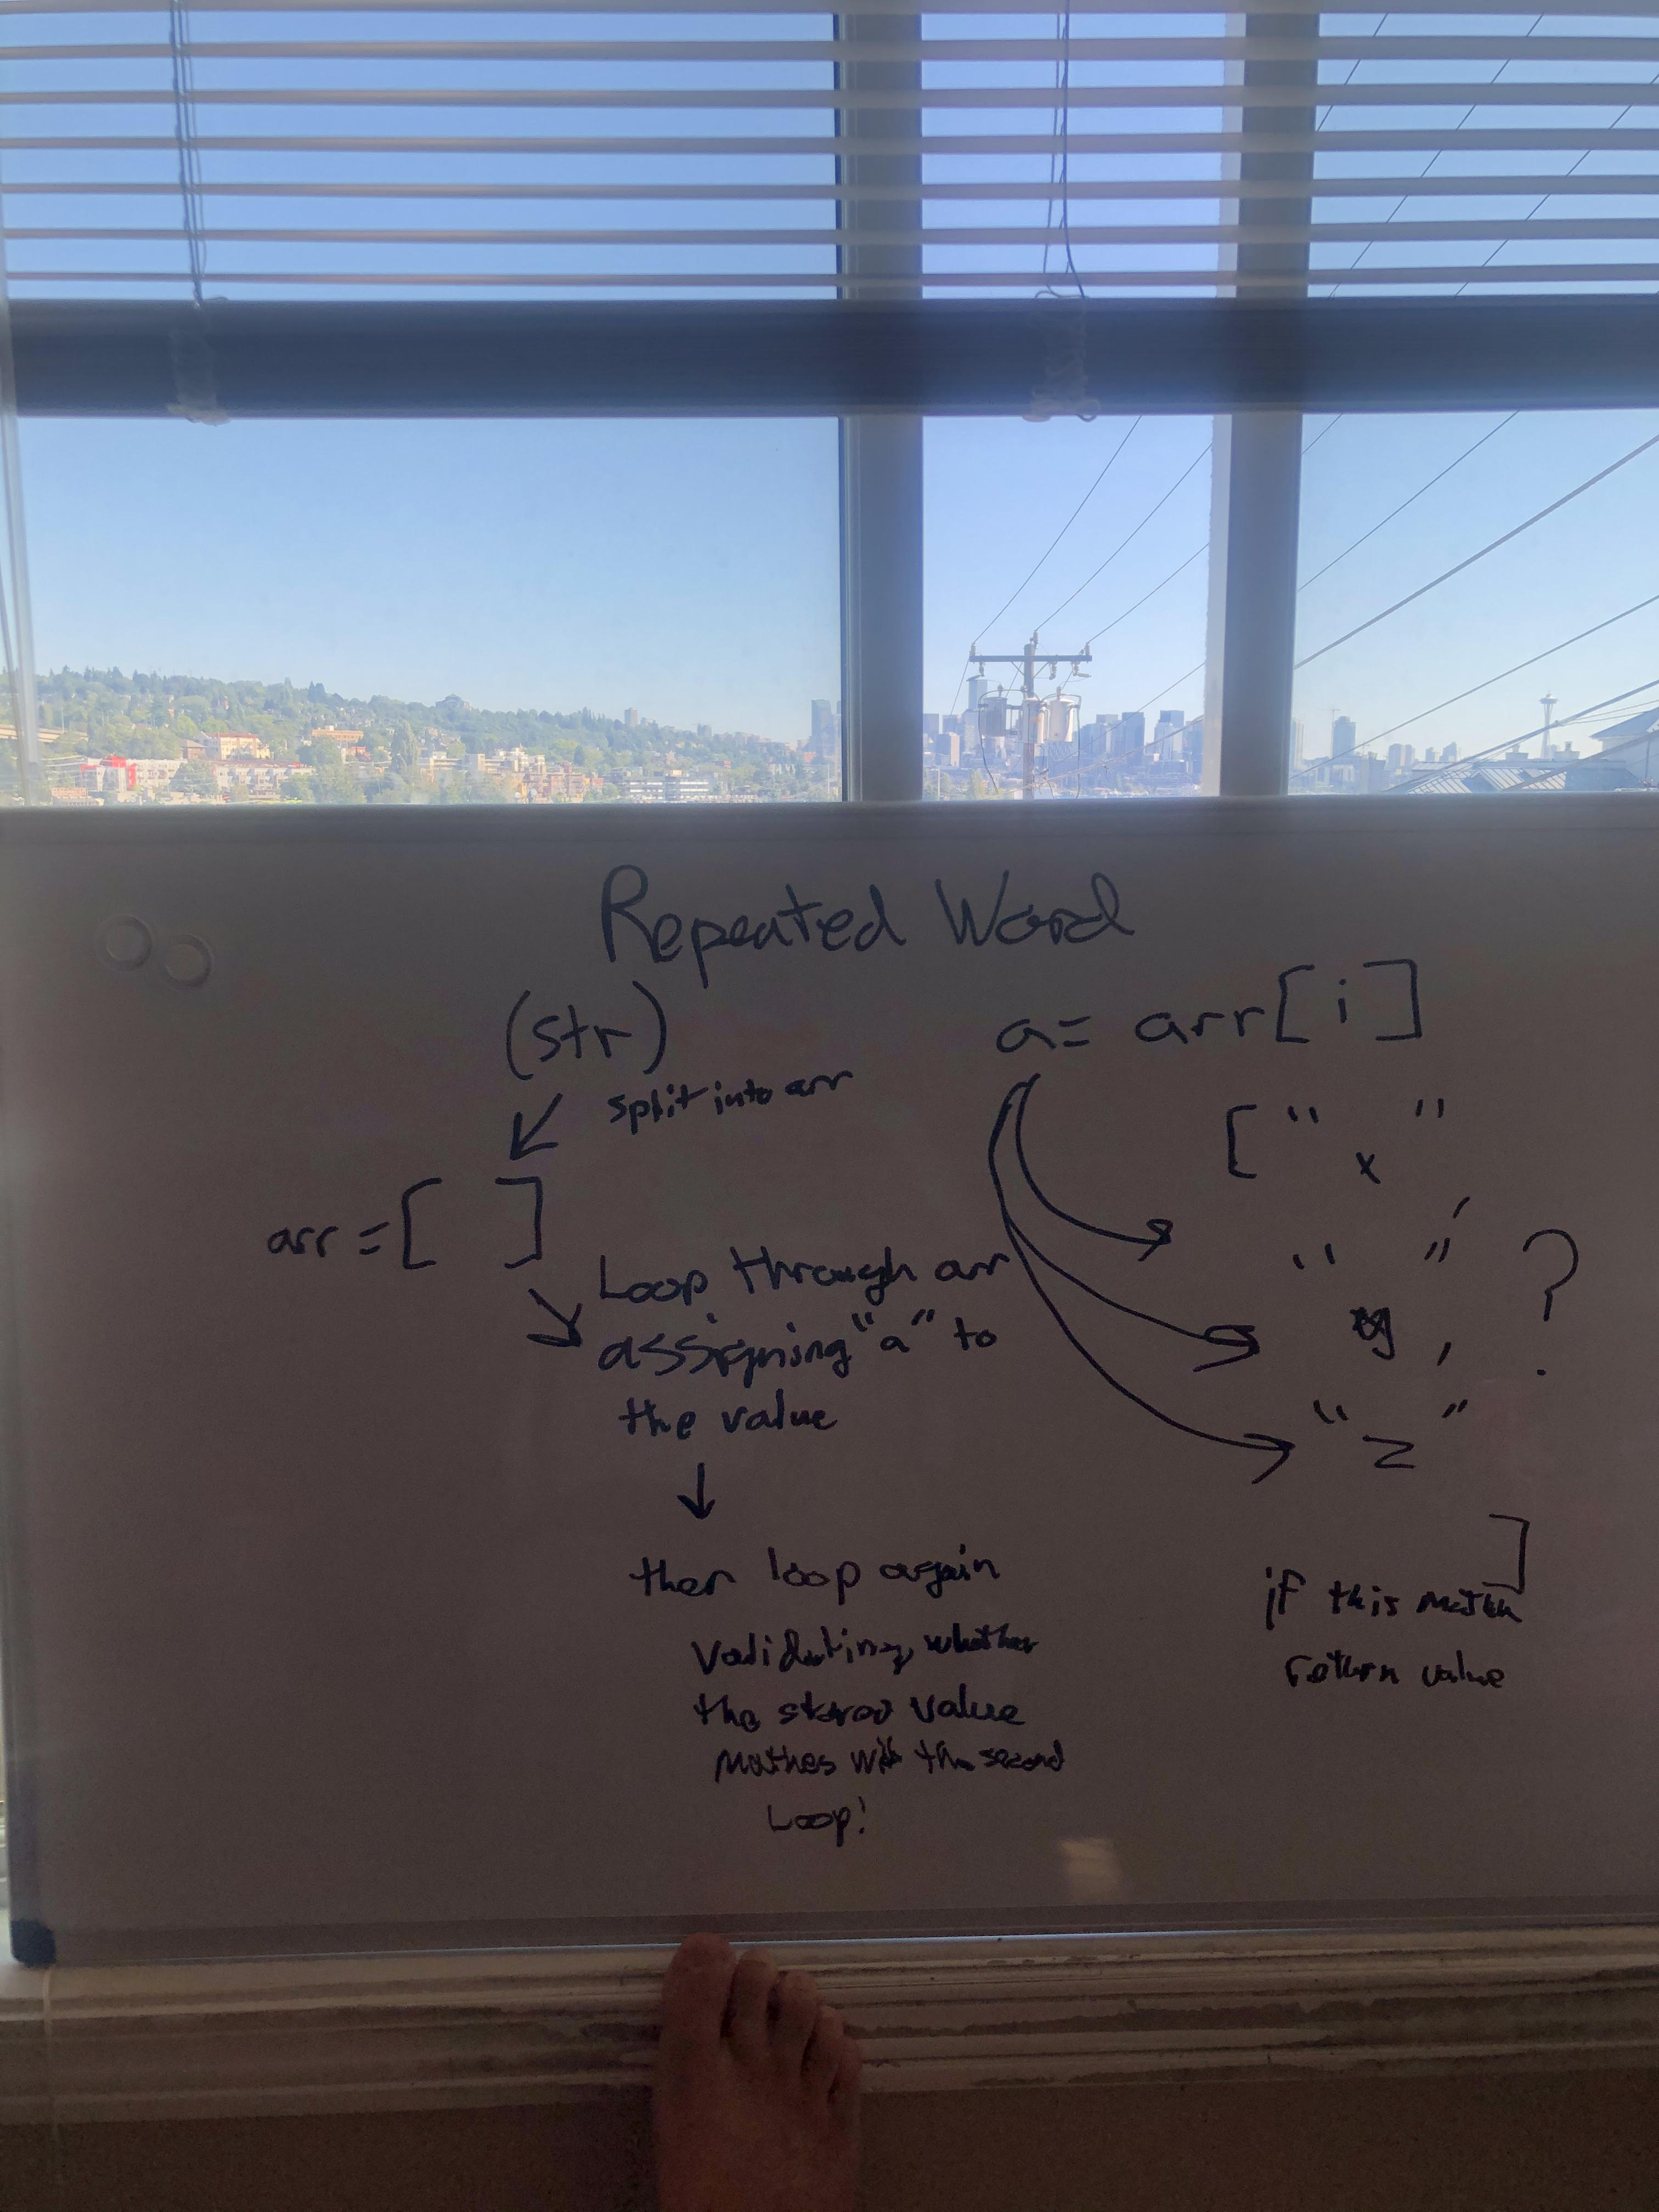 Repeated Word
(str)
split into arr
arr = [ ]
Loop through arr
assigning "a" to
the value
then loop again
Validating whether
the stored value
mathes with the second
Loop!
a= arr[i]
[ " x " ,
" y " , ?
" z "
]
if this match
return value